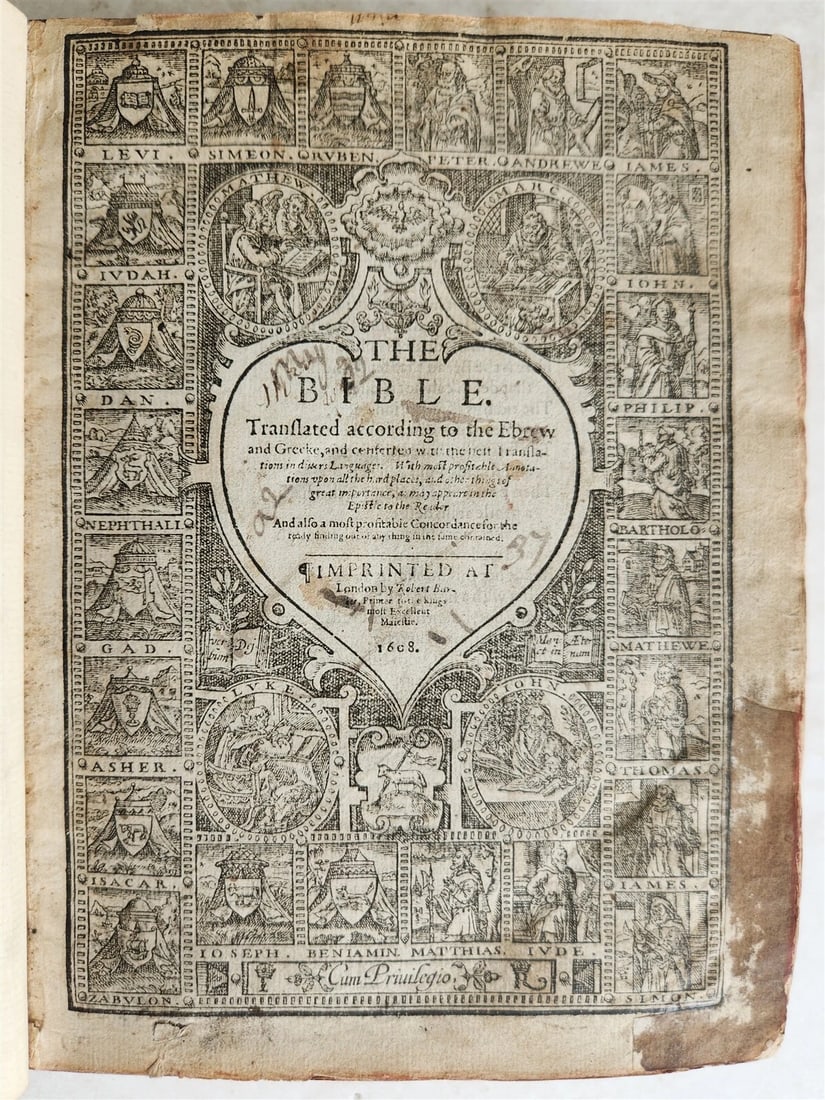 LEVI. SIMEON. RVBEN. PETER. ANDREWE IAMES.
MATHEW MARC
IVDAH. IOHN.
DAN. PHILIP.
THE
BIBLE.
Translated according to the Ebrew
and Greeke, and conferred with the best Transla-
tions in divers Languages. With most profitable Annota-
tions vpon all the hard places, and other things of
great importance, as may appeare in the
Epistle to the Reader
And also a most profitable Concordance for the
ready finding out of any thing in the same contained.
NEPHTHALI BARTHOLO.
¶IMPRINTED AT
London by Robert Bar-
ker, Printer to the Kings
most Excellent
Maiestie.
1608.
11 May
92
37
GAD. MATHEWE
Ver Dei
bum
Man Æter
et in num
LVKE IOHN
ASHER. THOMAS.
ISACAR. IAMES.
IOSEPH. BENIAMIN. MATTHIAS. IVDE
ZABVLON. Cum Priuilegio. SIMON.